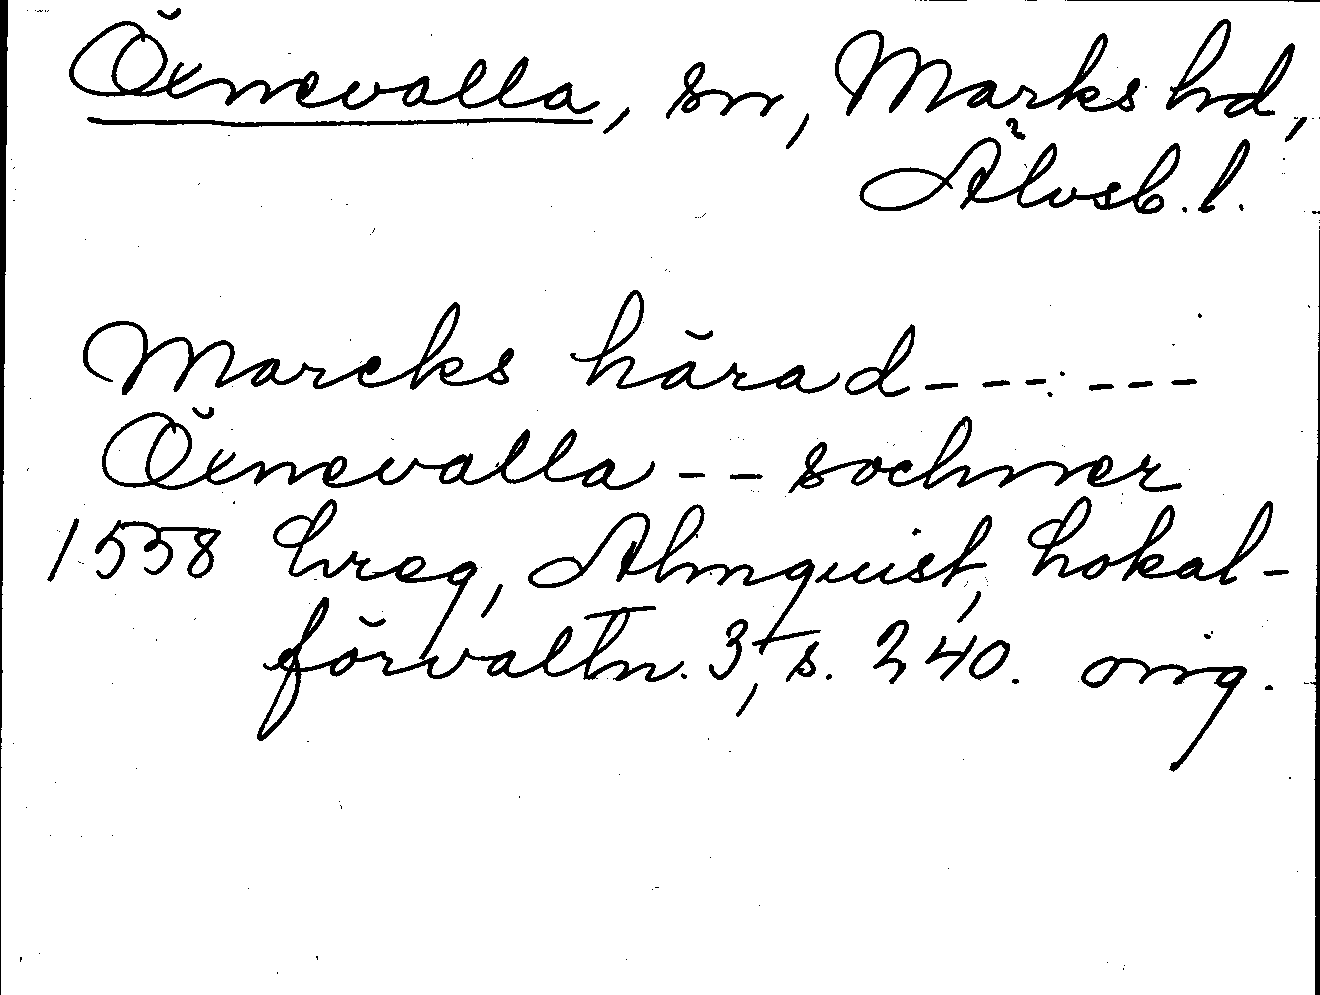 Öxnevalla, sn, Marks hd,
Älvsb. l.
Marcks härad--- ---
Öxnevalla -- sochner
1558 Lreg, Almquist, Lokal-
förvaltn. 3, s. 240. orig.